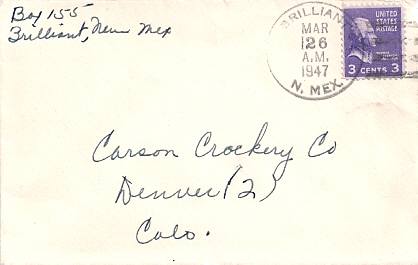 Box 155
Brilliant, New Mex
BRILLIANT
MAR
26
A.M.
1947
N. MEX.
UNITED
STATES
POSTAGE
3 CENTS 3
Carson Crockery Co
Denver (2)
Colo.